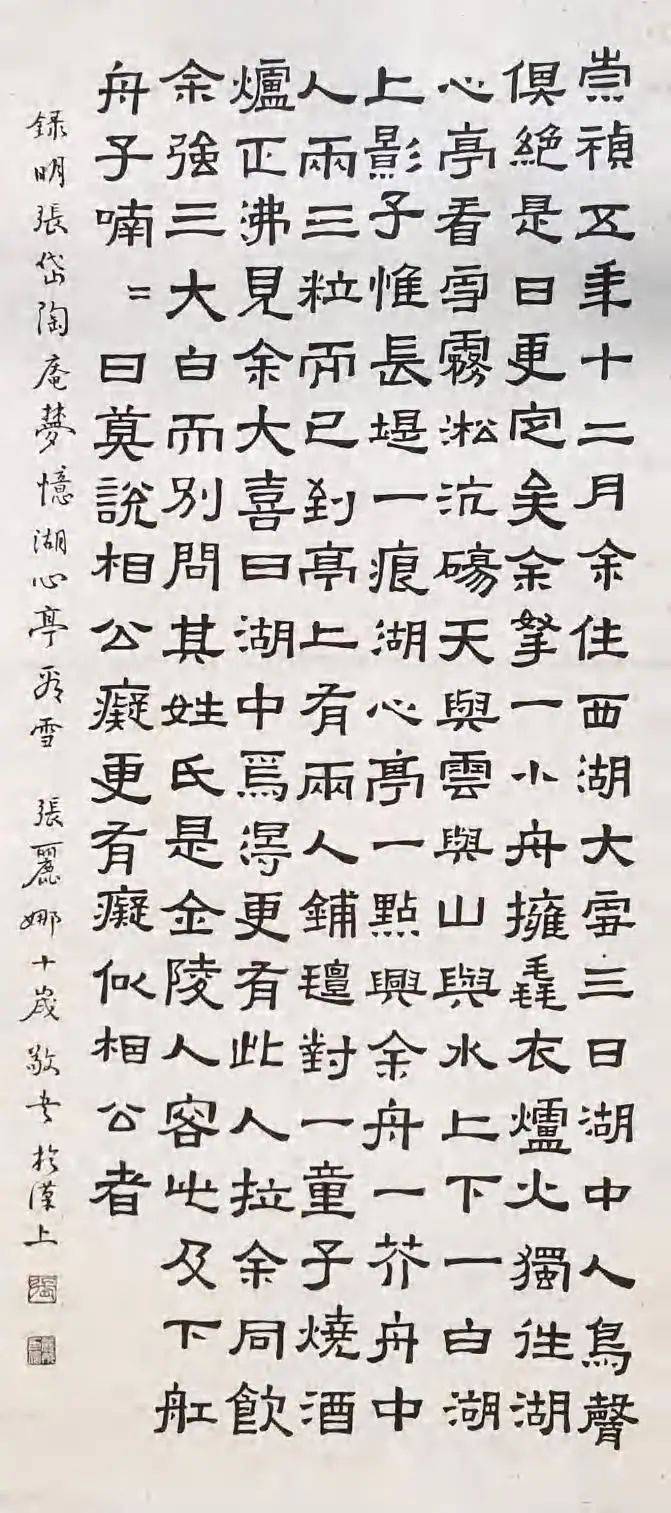 崇禎五年十二月余住西湖大雪三日湖中人鳥聲
俱絕是日更定矣余拏一小舟擁毳衣爐火獨往湖
心亭看雪霧淞沆碭天與雲與山與水上下一白湖
上影子惟長堤一痕湖心亭一點與余舟一芥舟中
人兩三粒而已到亭上有兩人鋪氈對一童子燒酒
爐正沸見余大喜曰湖中焉得更有此人拉余同飲
余強三大白而別問其姓氏是金陵人客此及下舡
舟子喃〻曰莫說相公癡更有癡似相公者
錄明張岱陶庵夢憶湖心亭看雪 張麗娜十歲敬書於漢上